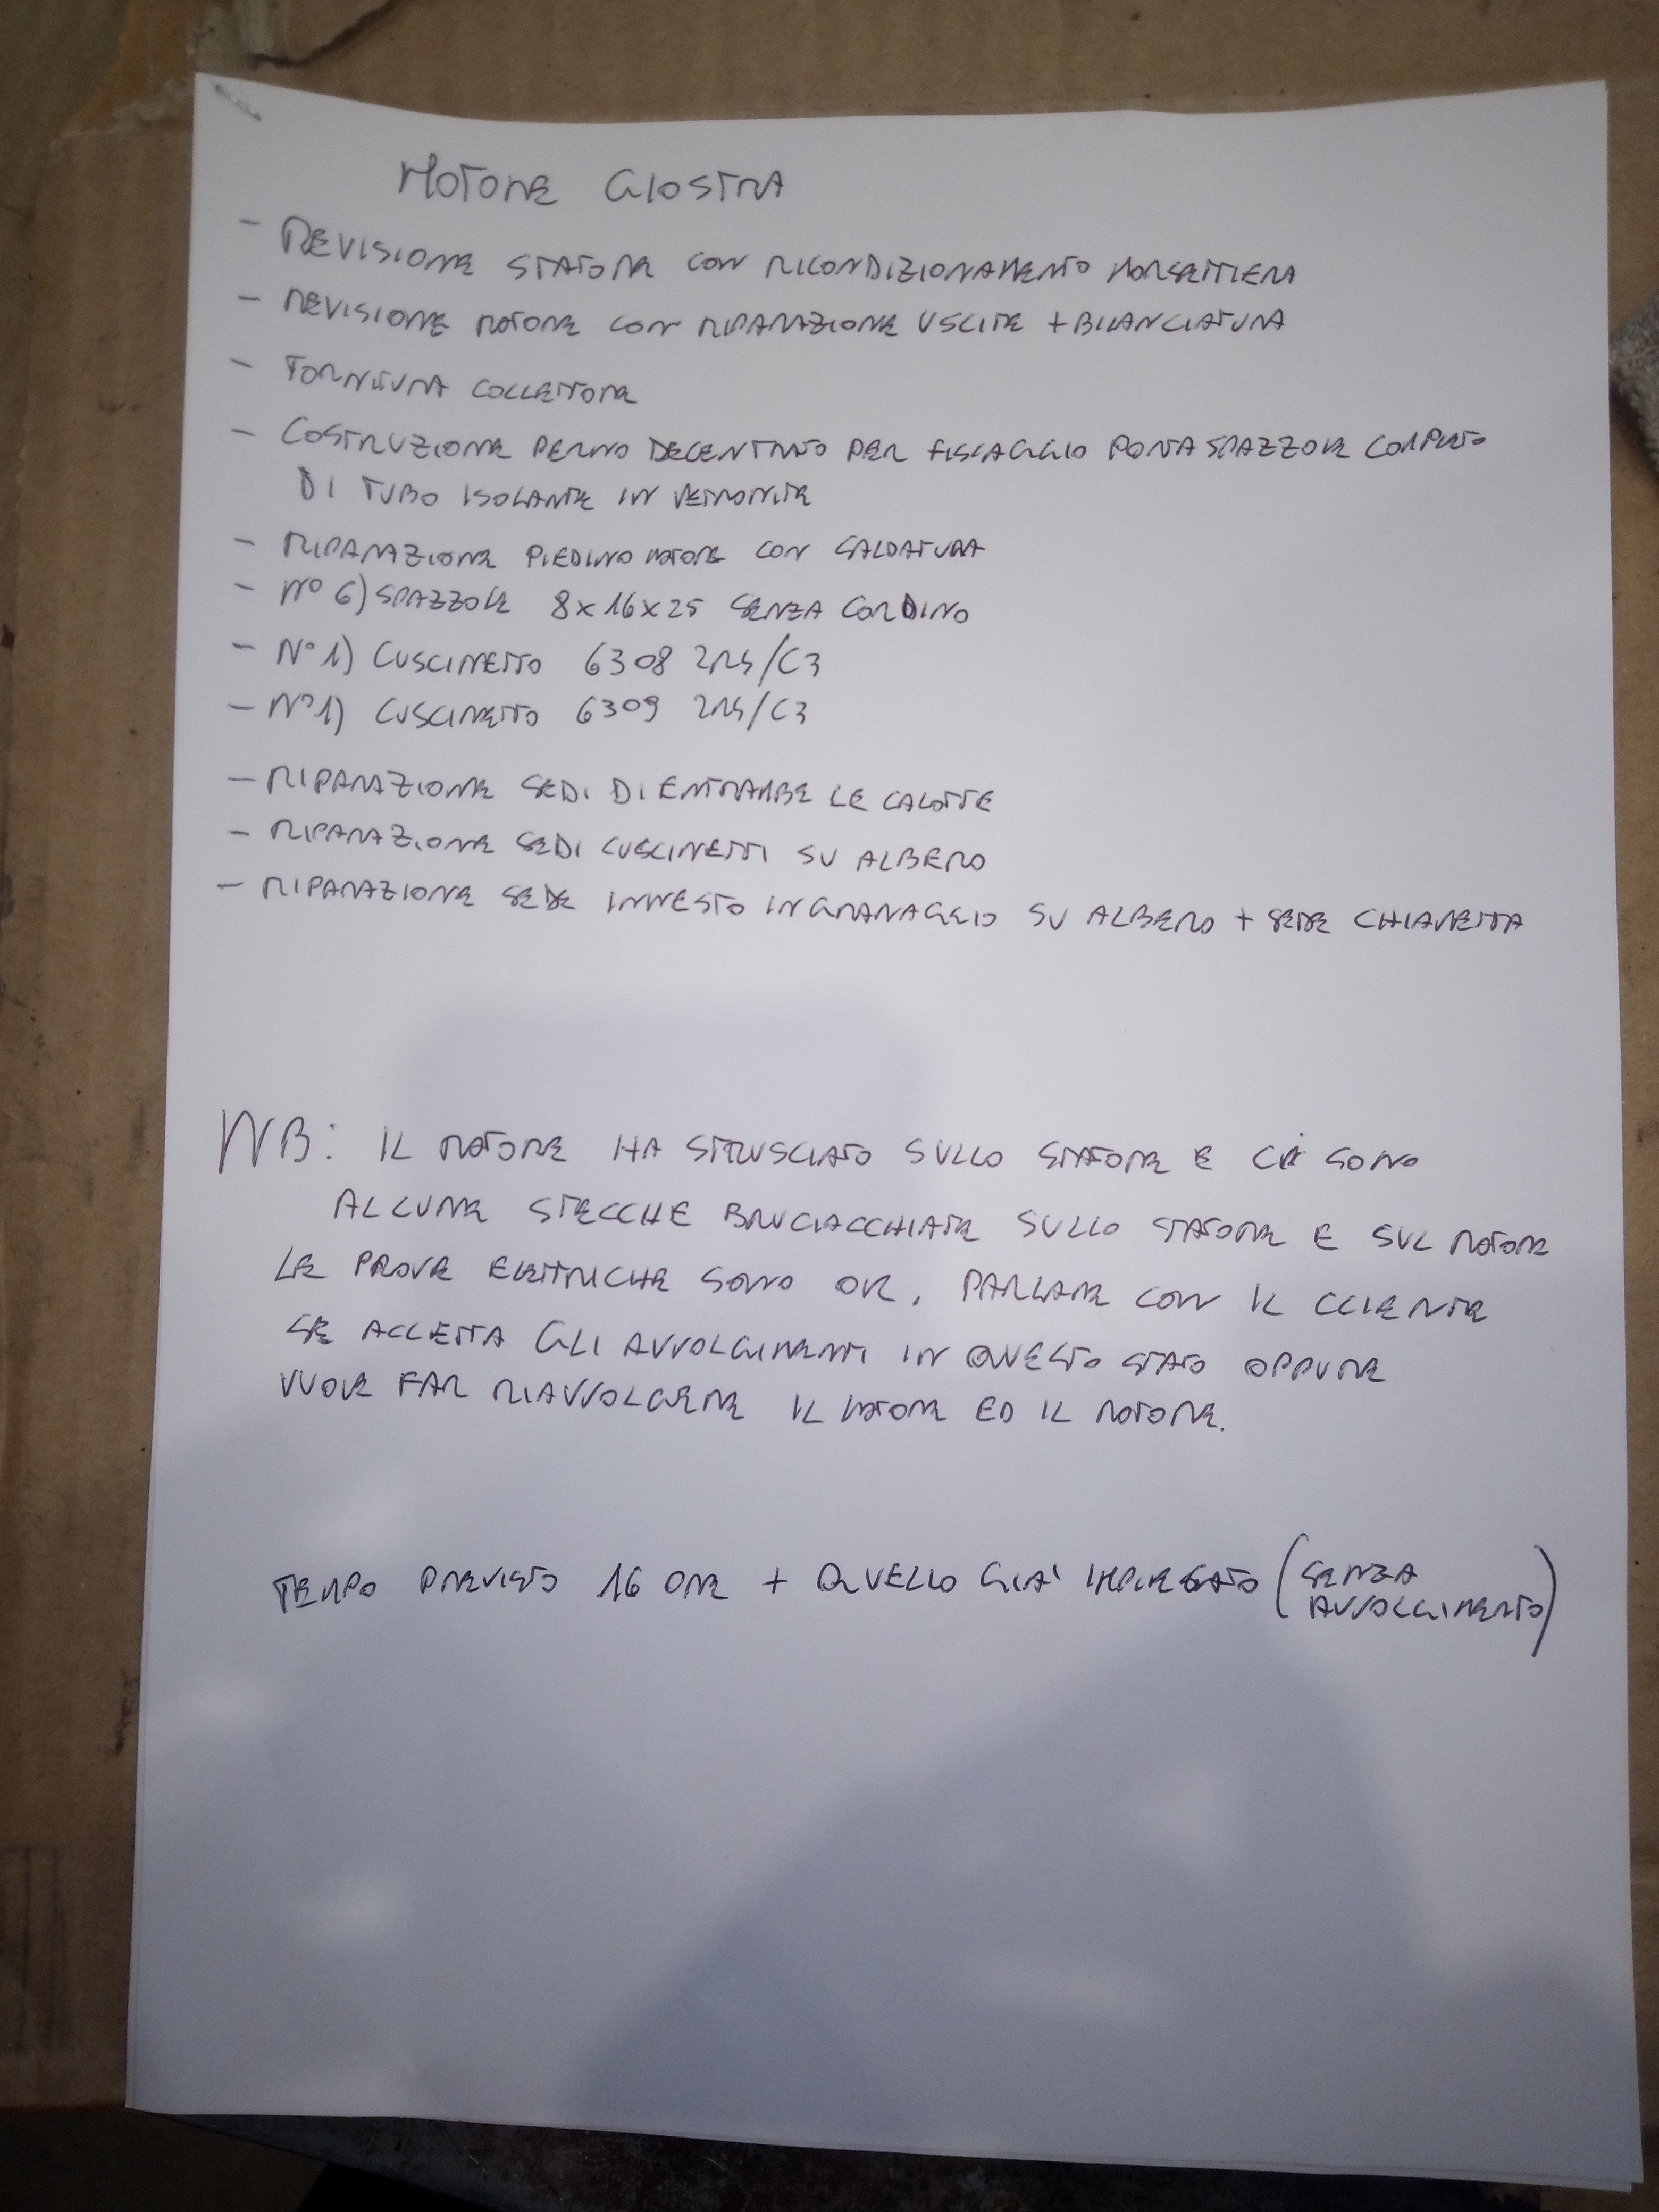 MOTORE GIOSTRA
- REVISIONE STATORE CON RICONDIZIONAMENTO MORSETTIERA
- REVISIONE ROTORE CON RIPARAZIONE USCITE + BILANCIATURA
- FORNITURA COLLETTORE
- COSTRUZIONE PERNO DECENTRATO PER FISSAGGIO PORTASPAZZOLE COMPLETO
DI TUBO ISOLANTE IN VETRONITE
- RIPARAZIONE PIEDINO MOTORE CON SALDATURA
- N° 6) SPAZZOLE 8x16x25 SENZA CORDINO
- N° 1) CUSCINETTO 6308 2RS/C3
- N° 1) CUSCINETTO 6309 2RS/C3
- RIPARAZIONE SEDI DI ENTRAMBE LE CALOTTE
- RIPARAZIONE SEDI CUSCINETTI SU ALBERO
- RIPARAZIONE SEDE INNESTO INGRANAGGIO SU ALBERO + SEDE CHIAVETTA
NB: IL ROTORE HA STRUSCIATO SULLO STATORE E CI SONO
ALCUNE STECCHE BRUCIACCHIATE SULLO STATORE E SUL ROTORE
LE PROVE ELETTRICHE SONO OK, PARLARE CON IL CLIENTE
SE ACCETTA GLI AVVOLGIMENTI IN QUESTO STATO OPPURE
VUOLE FAR RIAVVOLGERE IL MOTORE ED IL ROTORE.
TEMPO PREVISTO 16 ORE + QUELLO GIA' IMPIEGATO (SENZA
AVVOLGIMENTO)